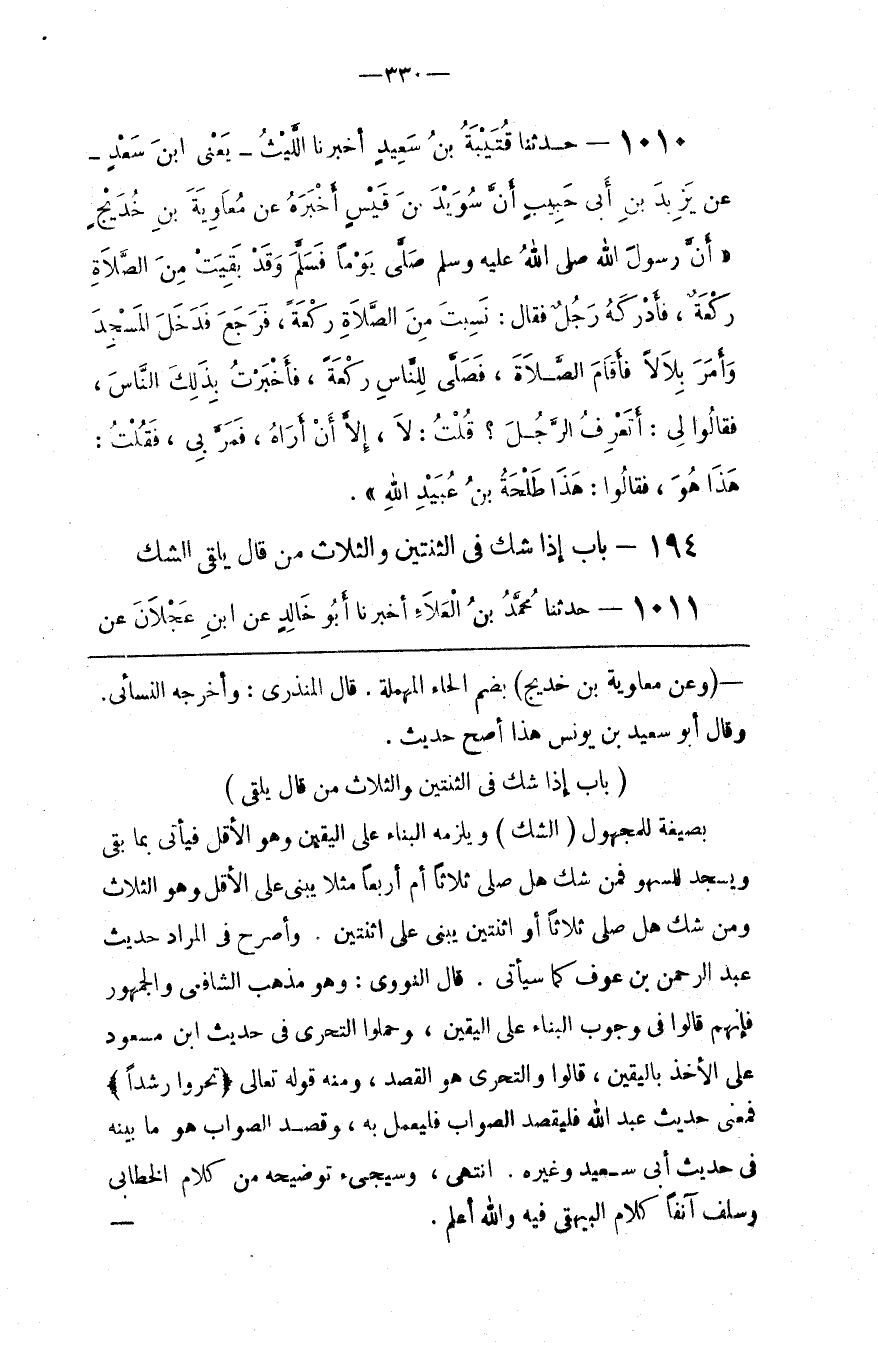 —٣٣٠—
١٠١٠ — حـدثنا قُتَيْبَةُ بنُ سَعِيدٍ أخبرنا اللَّيْثُ ـ يَعْنِى ابنَ سَعْدٍ ـ
عن يَزِيدَ بنِ أَبى حَبِيبٍ أَنَّ سُوَيْدَ بنَ قَيْسٍ أَخْبَرَهُ عن مُعَاوِيَةَ بنِ خُدَيْجٍ
« أَنَّ رسولَ الله صلى اللهُ عليه وسلم صَلَّى يَوْماً فَسَلَّمَ وَقَدْ بَقِيَتْ مِنَ الصَّلاَةِ
رَكْعَةٌ ، فأَدْرَكَهُ رَجُلٌ فقال : نَسِيتَ مِنَ الصَّلاَةِ رَكْعَةً ، فَرَجَعَ فَدَخَلَ المَسْجِدَ
وَأَمَرَ بِلاَلاً فأَقَامَ الصَّـلاَةَ ، فَصَلَّى لِلنَّاسِ رَكْعَةً ، فأَخْبَرْتُ بِذَلِكَ النَّاسَ ،
فقالُوا لِى : أَتَعْرِفُ الرَّجُـلَ ؟ قُلْتُ : لاَ ، إِلاَّ أَنْ أَرَاهُ ، فَمَرَّ بِى ، فَقُلْتُ :
هَذَا هُوَ ، فقالُوا : هَذَا طَلْحَةُ بنُ عُبَيْدِ اللهِ » .
١٩٤ — باب إذا شك فى الثنتين والثلاث من قال يلقى الشك
١٠١١ — حدثنا مُحمَّدُ بنُ الْعَلاَءِ أخبرنا أَبُو خَالِدٍ عن ابنِ عَجْلاَنَ عن
—(وعن معاوية بن خديج) بضم الحاء المهملة . قال المنذرى : وأخرجه النسائى.
وقال أبو سعيد بن يونس هذا أصح حديث .
( باب إذا شك فى الثنتين والثلاث من قال يلقى )
بصيغة للمجهول ( الشك ) ويلزمه البناء على اليقين وهو الأقل فيأتى بما بقى
ويسجد للسهو فمن شك هل صلى ثلاثاً أم أربعاً مثلا يبنى على الأقل وهو الثلاث
ومن شك هل صلى ثلاثاً أو اثنتين يبنى على اثنتين . وأصرح فى المراد حديث
عبد الرحمن بن عوف كما سيأتى . قال النووى : وهو مذهب الشافعى والجمهور
فإنهم قالوا فى وجوب البناء على اليقين ، وحملوا التحرى فى حديث ابن مسعود
على الأخذ باليقين ، قالوا والتحرى هو القصد ، ومنه قوله تعالى ﴿تحروا رشداً﴾
فمعنى حديث عبد الله فليقصد الصواب فليعمل به ، وقصـد الصواب هو ما بينه
فى حديث أبى سـعيد وغيره . انتهى ، وسيجىء توضيحه من كلام الخطابى
وسلف آنفاً كلام البيهقى فيه والله أعلم . —